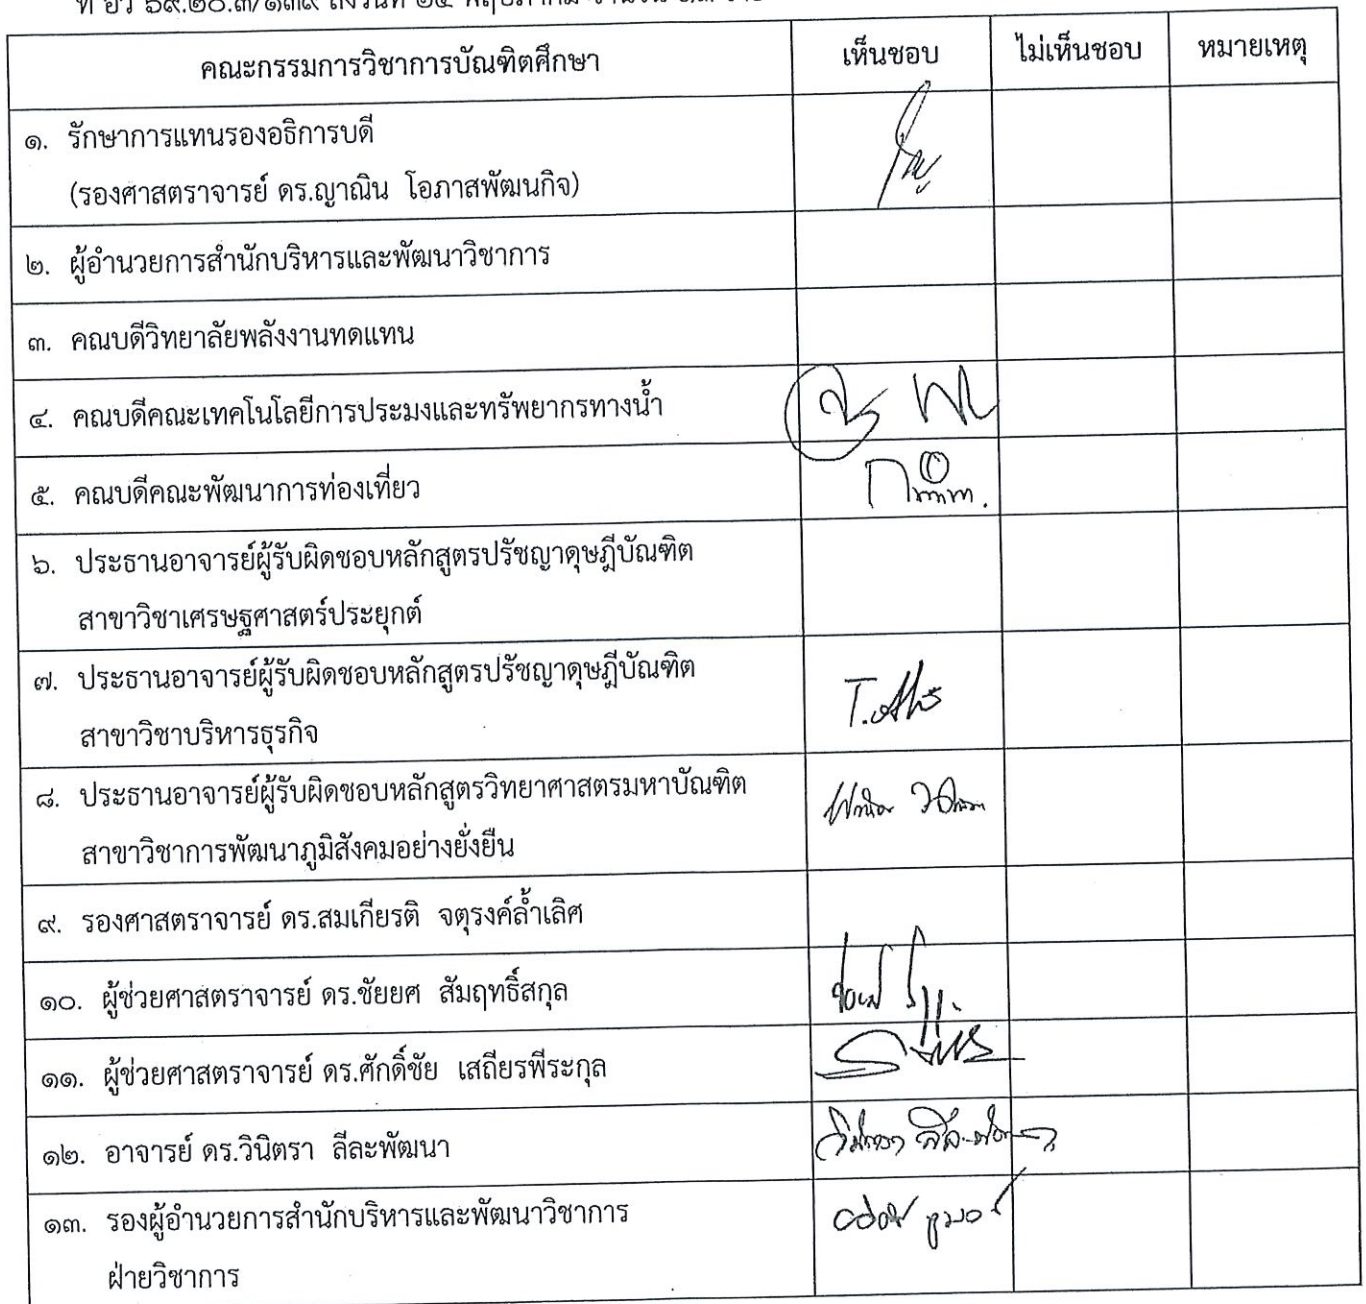 คณะกรรมการวิชาการบัณฑิตศึกษา เห็นชอบ ไม่เห็นชอบ หมายเหตุ
๑. รักษาการแทนรองอธิการบดี
(รองศาสตราจารย์ ดร.ญาณิน โอภาสพัฒนกิจ)
๒. ผู้อำนวยการสำนักบริหารและพัฒนาวิชาการ
๓. คณบดีวิทยาลัยพลังงานทดแทน
๔. คณบดีคณะเทคโนโลยีการประมงและทรัพยากรทางน้ำ
๕. คณบดีคณะพัฒนาการท่องเที่ยว
๖. ประธานอาจารย์ผู้รับผิดชอบหลักสูตรปรัชญาดุษฎีบัณฑิต
สาขาวิชาเศรษฐศาสตร์ประยุกต์
๗. ประธานอาจารย์ผู้รับผิดชอบหลักสูตรปรัชญาดุษฎีบัณฑิต
สาขาวิชาบริหารธุรกิจ
๘. ประธานอาจารย์ผู้รับผิดชอบหลักสูตรวิทยาศาสตรมหาบัณฑิต
สาขาวิชาการพัฒนาภูมิสังคมอย่างยั่งยืน
๙. รองศาสตราจารย์ ดร.สมเกียรติ จตุรงค์ล้ำเลิศ
๑๐. ผู้ช่วยศาสตราจารย์ ดร.ชัยยศ สัมฤทธิ์สกุล
๑๑. ผู้ช่วยศาสตราจารย์ ดร.ศักดิ์ชัย เสถียรพีระกุล
๑๒. อาจารย์ ดร.วินิตรา ลีละพัฒนา
๑๓. รองผู้อำนวยการสำนักบริหารและพัฒนาวิชาการ
ฝ่ายวิชาการ